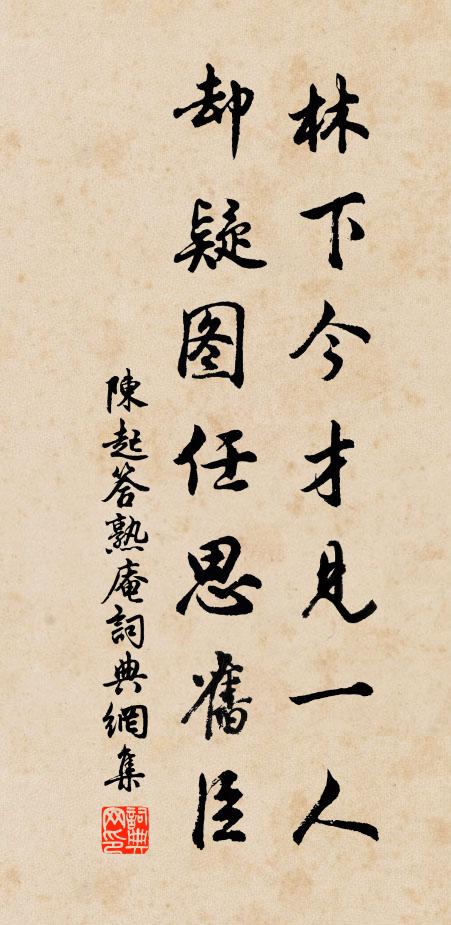 林下今才見一人
却疑图任思舊臣
陳起答熟庵詞典網集
詞典网印